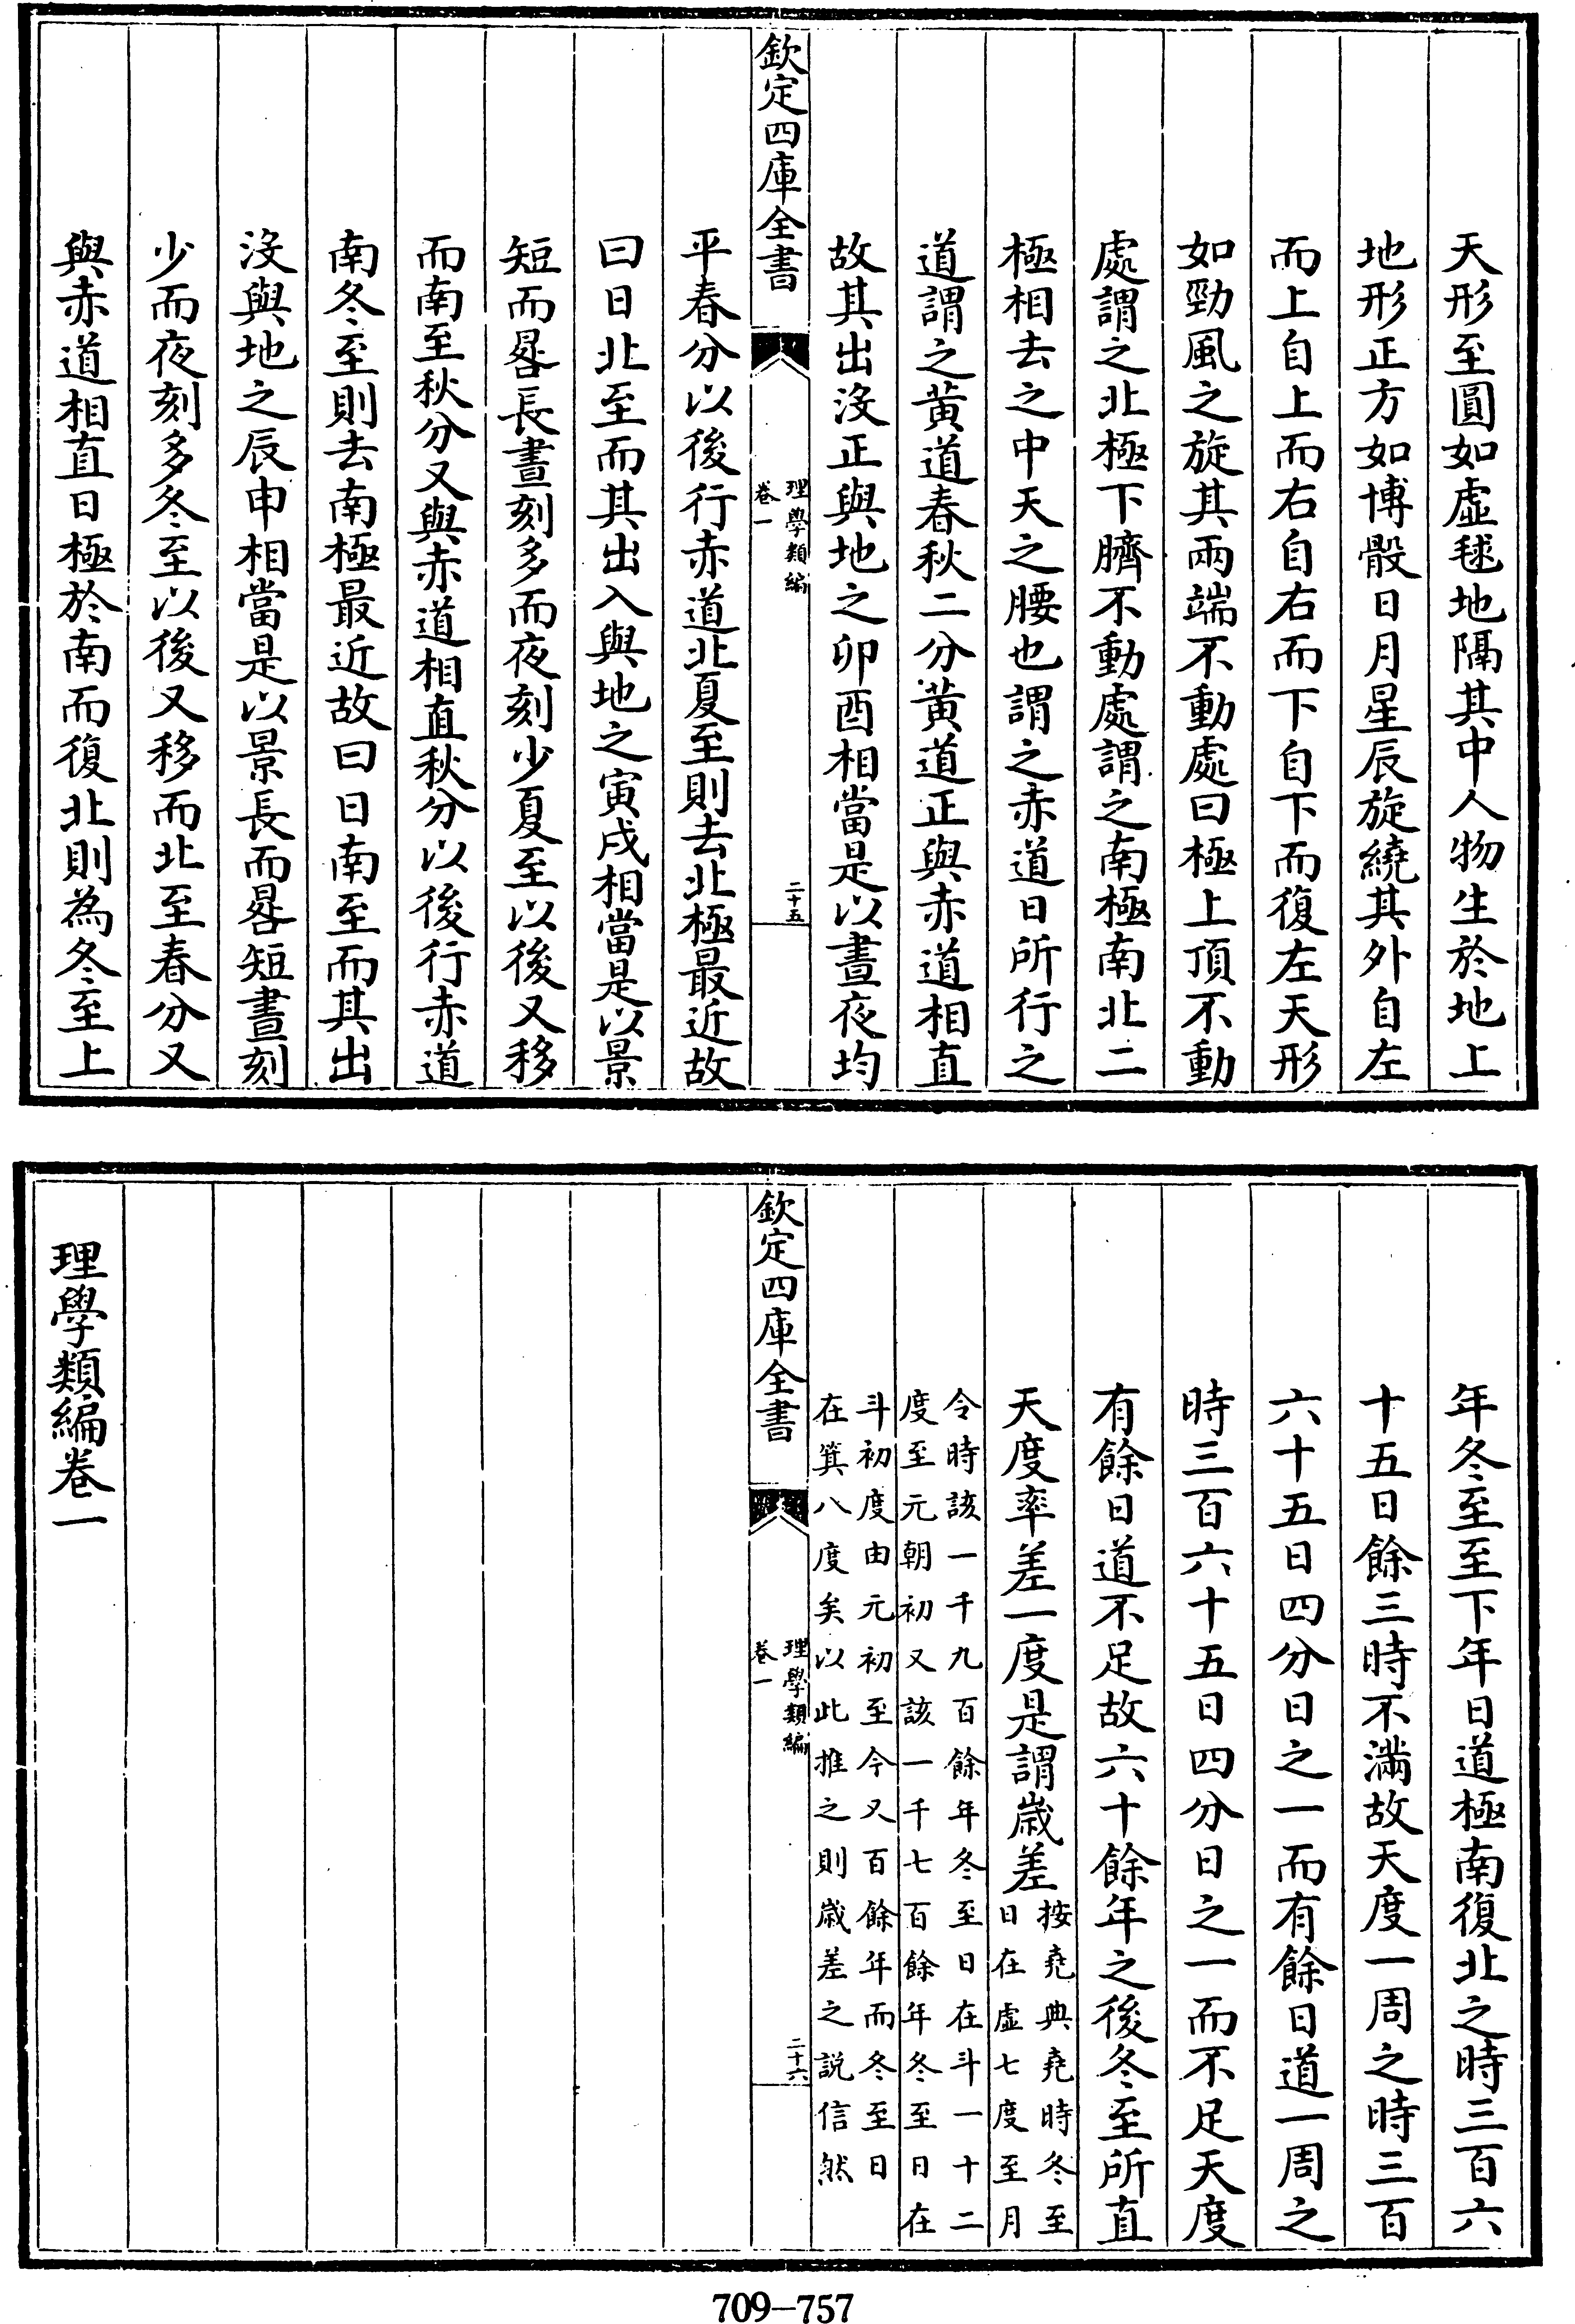 天形至圓如虛毬地隔其中人物生於地上
地形正方如博骰日月星辰旋繞其外自左
而上自上而右自右而下自下而復左天形
如勁風之旋其兩端不動處曰極上頂不動
處謂之北極下臍不動處謂之南極南北二
極相去之中天之腰也謂之赤道日所行之
道謂之黃道春秋二分黃道正與赤道相直
故其出沒正與地之卯酉相當是以晝夜均
欽定四庫全書
理學類編
卷一
二十五
平春分以後行赤道北夏至則去北極最近故
曰日北至而其出入與地之寅戌相當是以景
短而晷長晝刻多而夜刻少夏至以後又移
而南至秋分又與赤道相直秋分以後行赤道
南冬至則去南極最近故曰日南至而其出
沒與地之辰申相當是以景長而晷短晝刻
少而夜刻多冬至以後又移而北至春分又
與赤道相直日極於南而復北則為冬至上
年冬至至下年日道極南復北之時三百六
十五日餘三時不滿故天度一周之時三百
六十五日四分日之一而有餘日道一周之
時三百六十五日四分日之一而不足天度
有餘日道不足故六十餘年之後冬至所直
天度率差一度是謂歲差
按堯典堯時冬至
日在虛七度至月
令時該一千九百餘年冬至日在斗一十二
度至元朝初又該一千七百餘年冬至日在
斗初度由元初至今又百餘年而冬至日
在箕八度矣以此推之則歲差之說信然
欽定四庫全書
理學類編
卷一
二十六
理學類編卷一
709-757